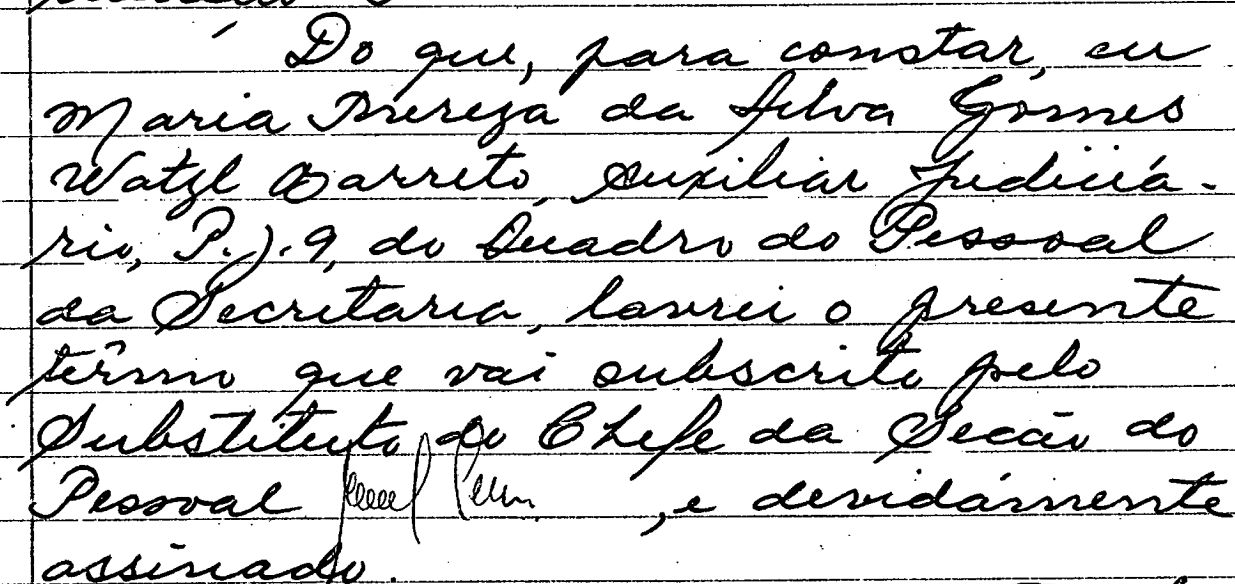 Do que, para constar, eu
Maria Thereza da Silva Gomes
Watzl Barreto, Auxiliar Judiciá-
rio, P.J.9, do Quadro do Pessoal
da Secretaria, lavrei o presente
têrmo que vai subscrito pelo
Substituto do Chefe da Secão do
Pessoal , e devidamente
assinado.